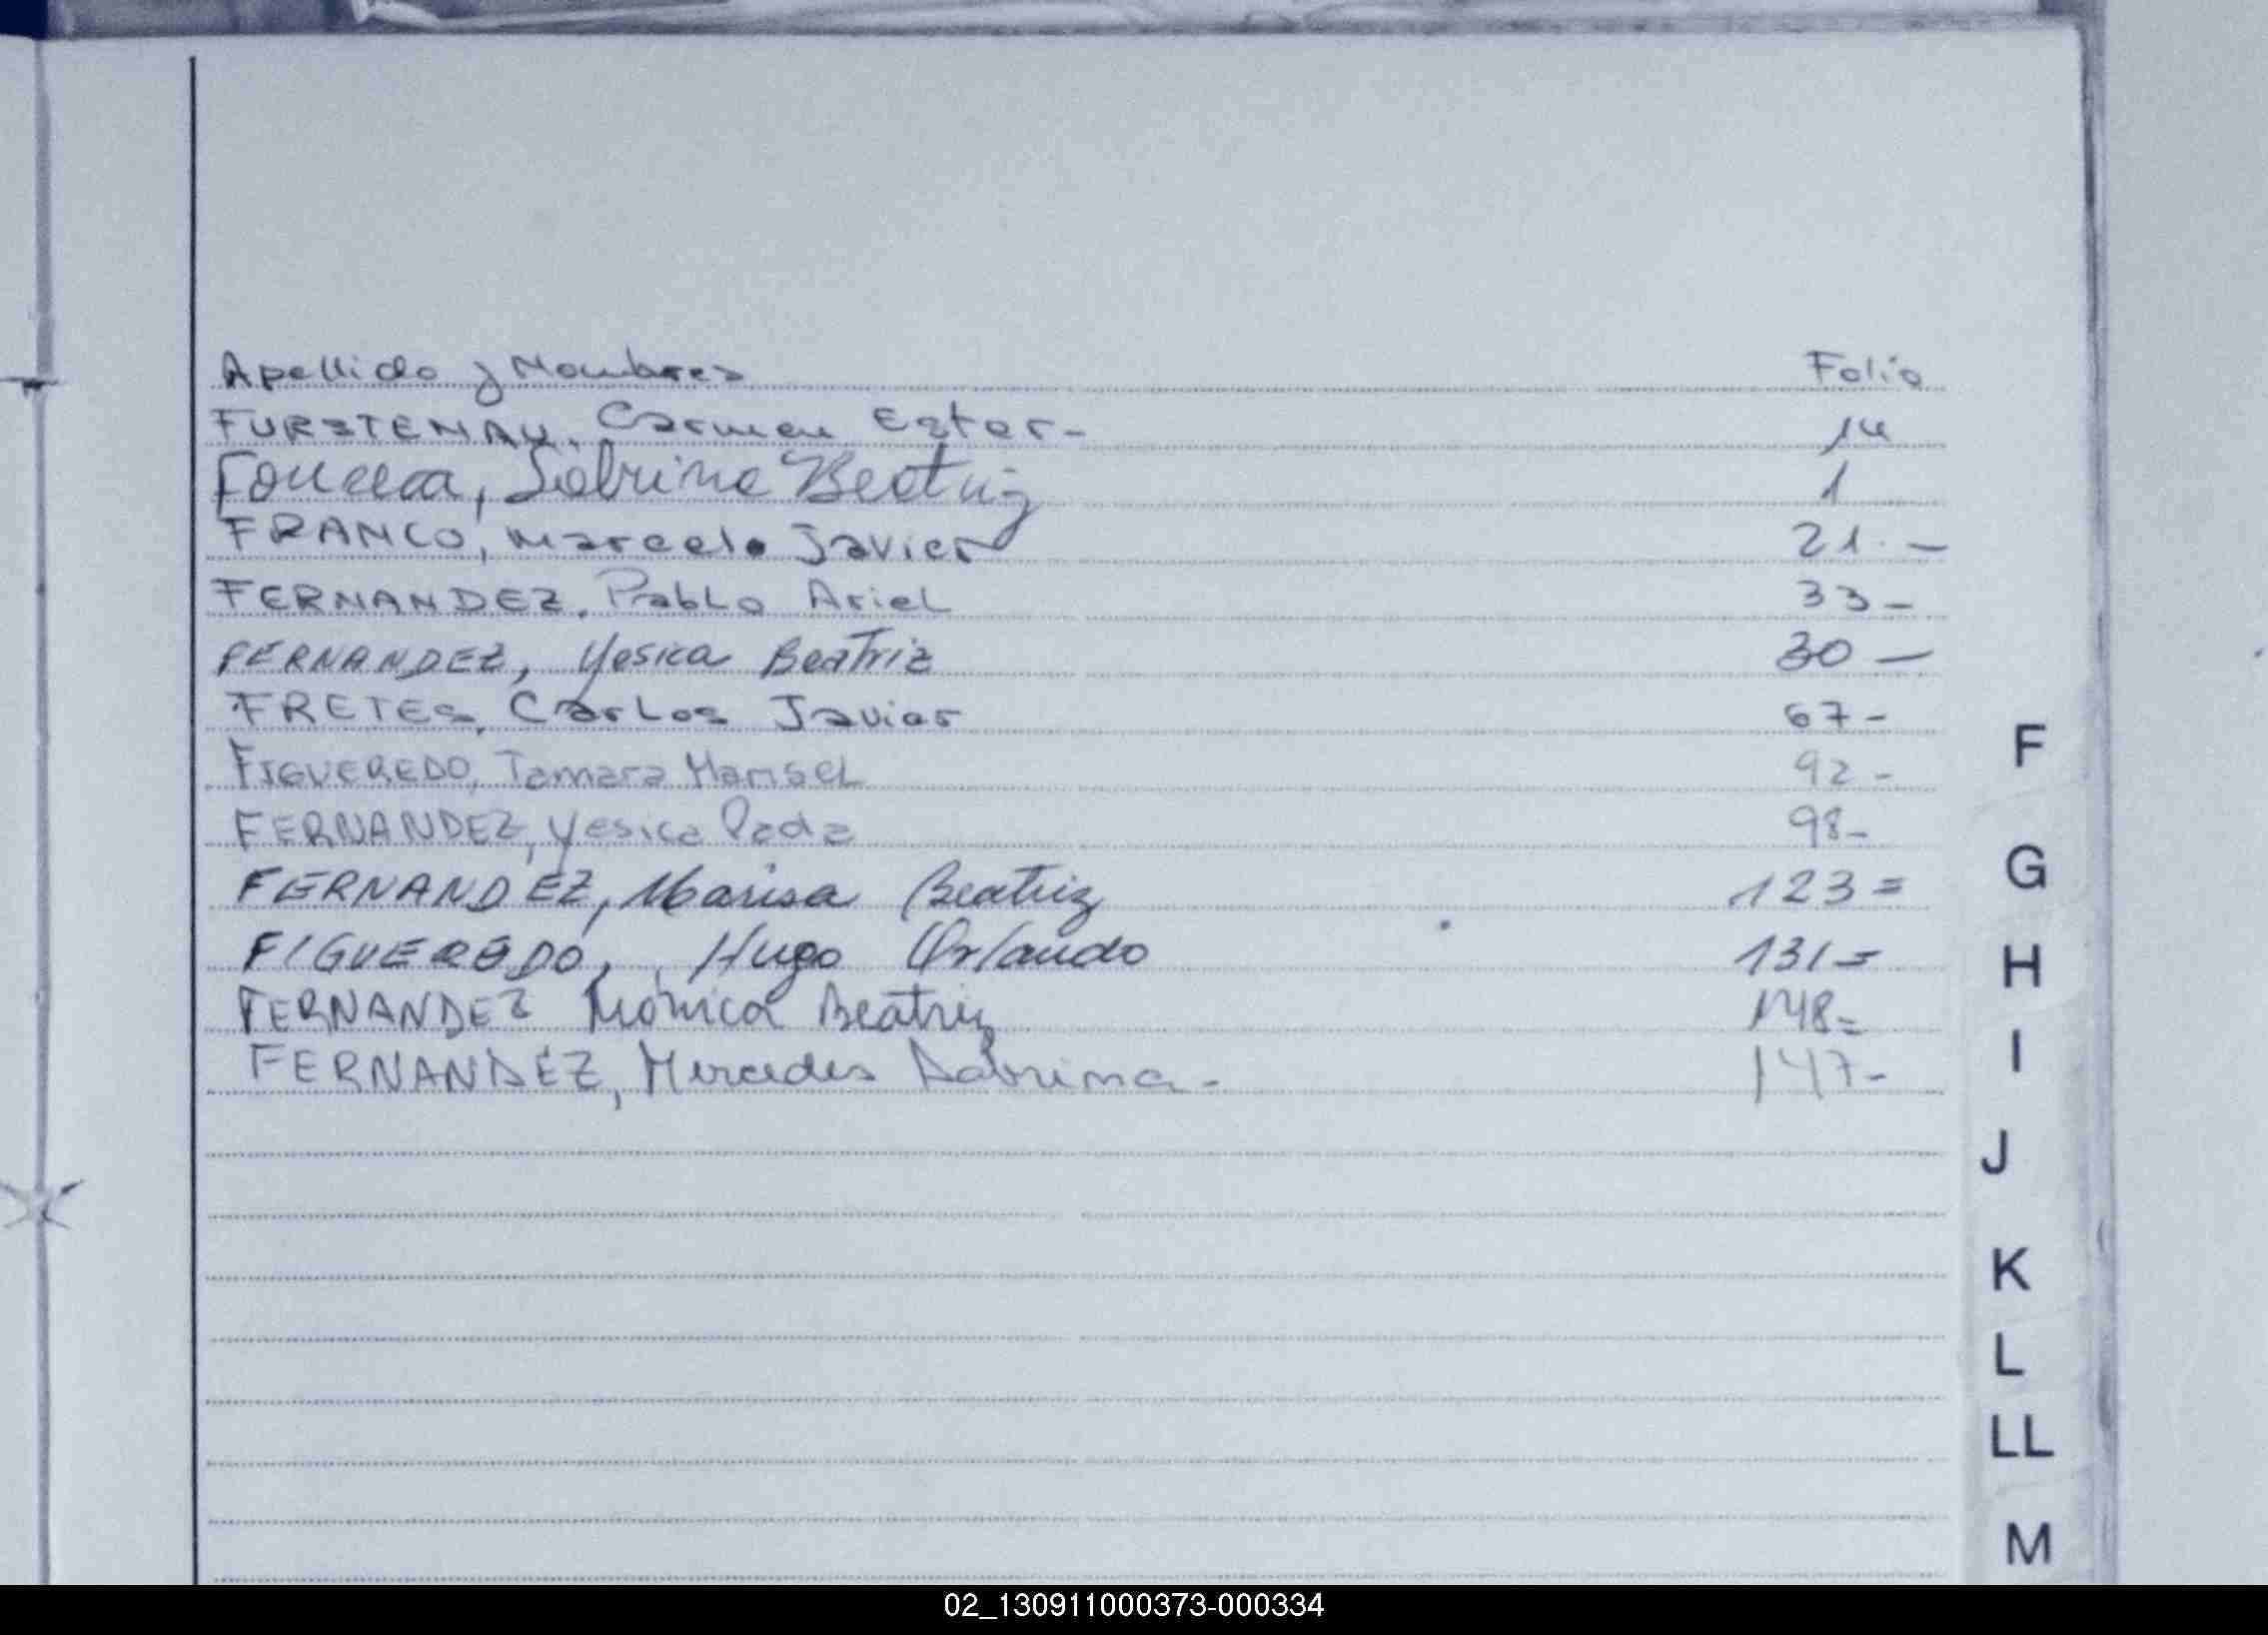 Apellido y Nombres Folio
FURSTENAU, Carmen Ester- 14
Fonseca, Sabrina Beatriz 1
FRANCO, Marcelo Javier 21.-
FERNANDEZ, Pablo Ariel 33-
FERNANDEZ, Yesica Beatriz 30-
FRETES, Carlos Javier 67-
FIGUEREDO, Tamara Marisel 92-
FERNANDEZ, Yesica 98-
FERNANDEZ, Marisa Beatriz 123=
FIGUEREDO, Hugo Orlando 131=
FERNANDEZ Mónica Beatriz 148=
FERNANDEZ, Mercedes Sabrina- 147-
F
G
H
I
J
K
L
LL
M
02_130911000373-000334